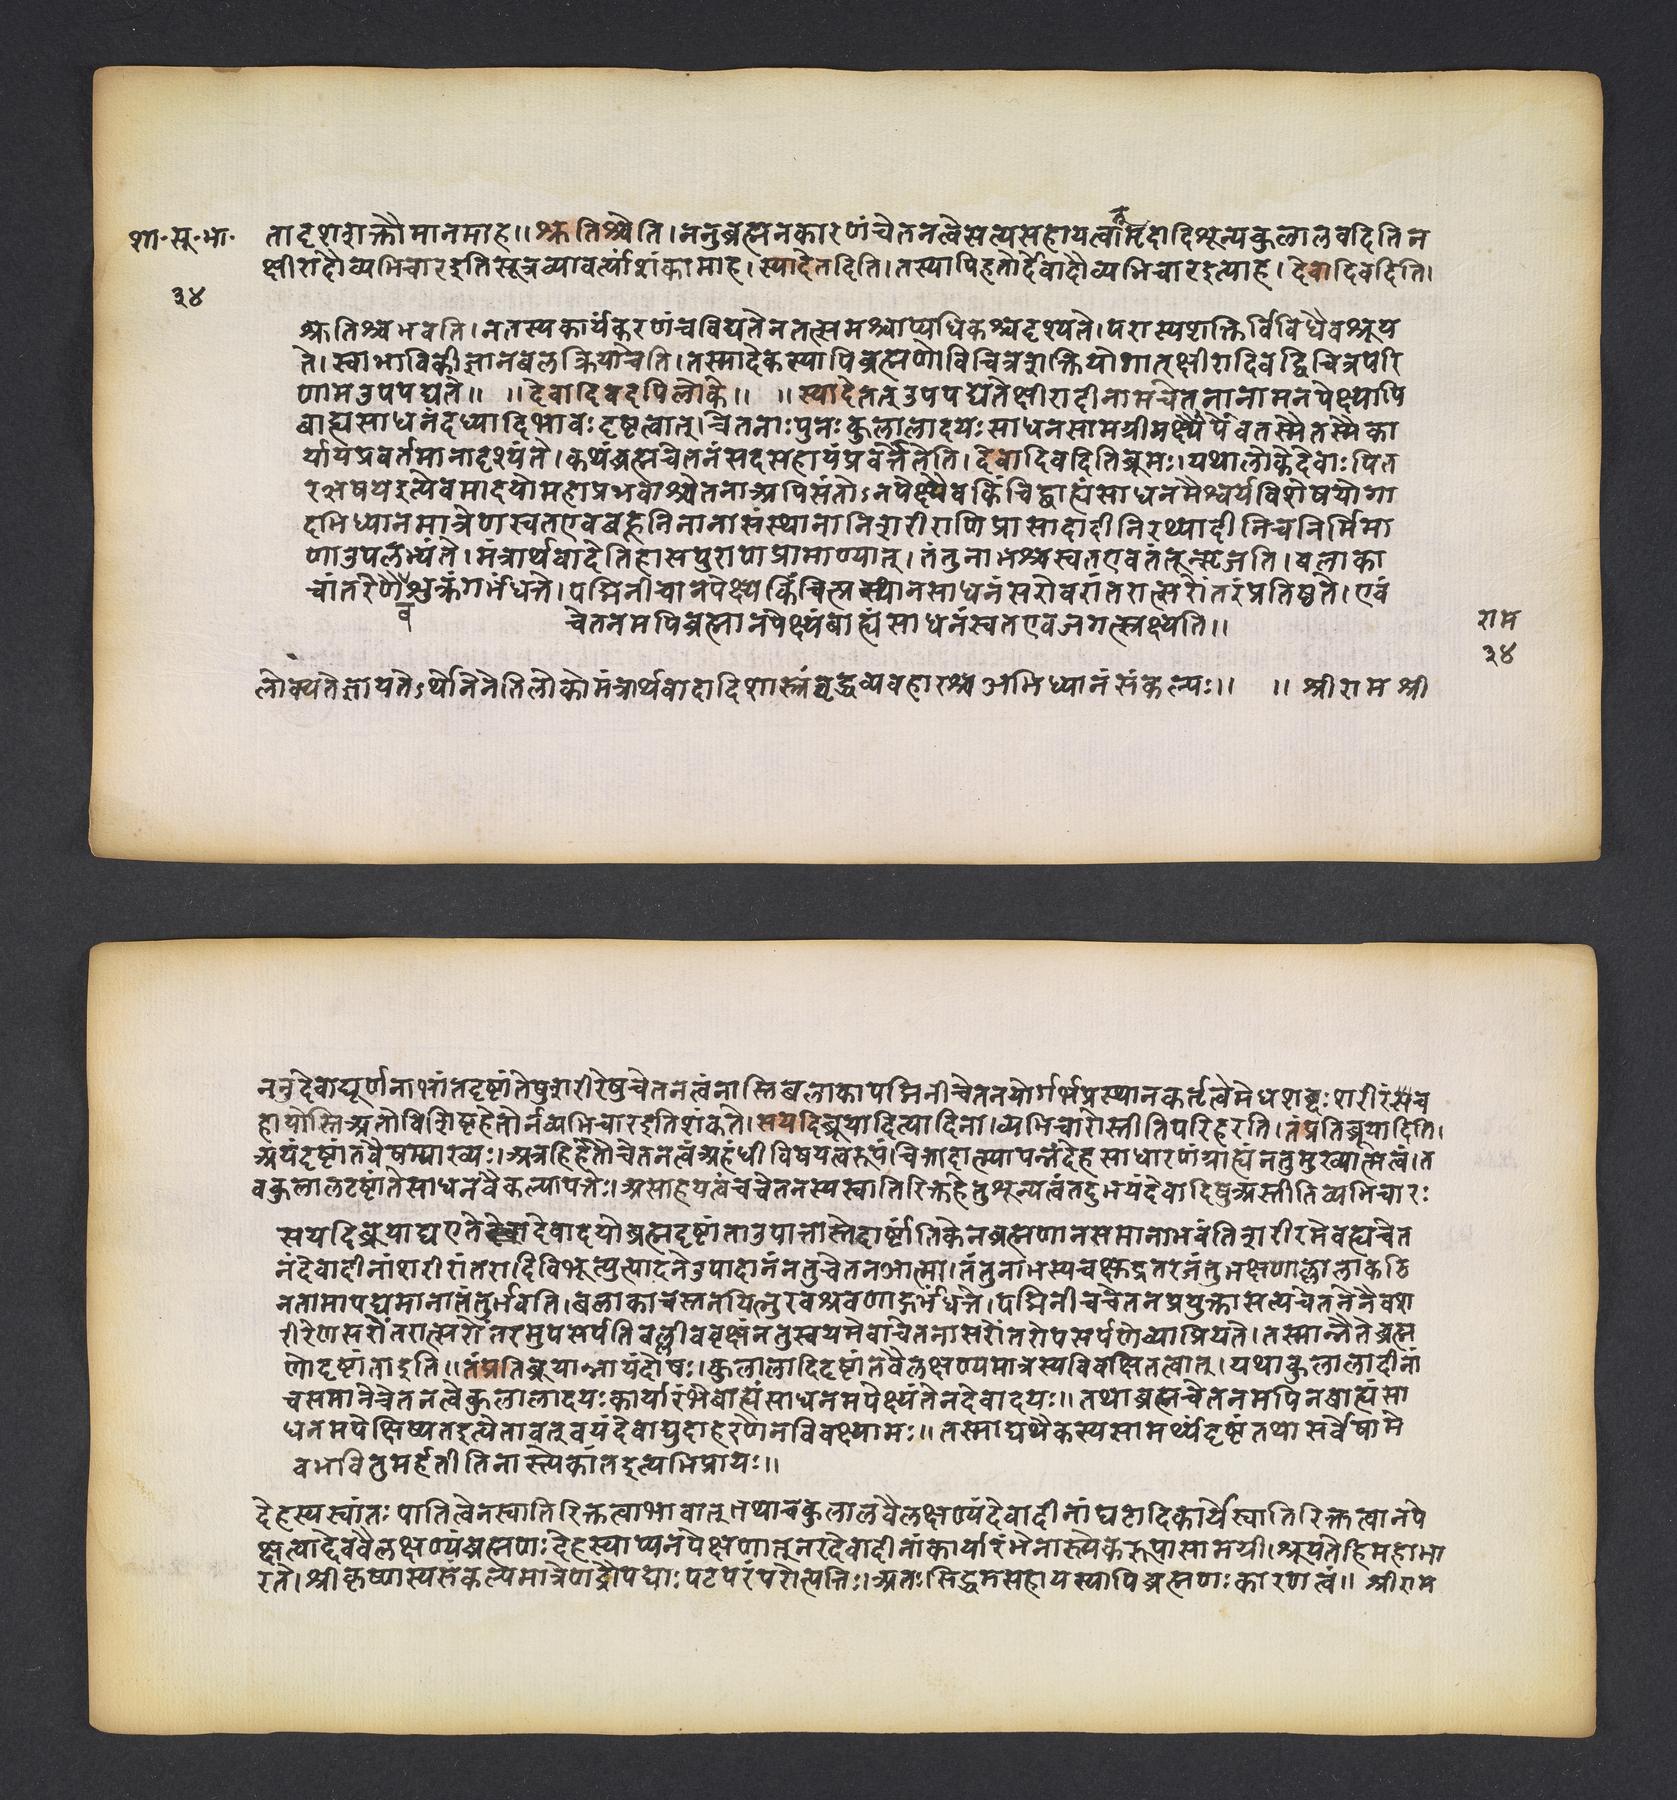 शा·सू·भा·
३४
तादृशशक्तौमानमाह॥श्रुतिश्चेति।ननुब्रह्मनकारणंचेतनत्वेसत्यसहायत्वान्मृदादिशून्यकुलालवदितिन
क्षीरादौव्यभिचारइतिसूत्रव्यावर्त्याशंकामाह।स्यादेतदिति।तस्यापिहेतोर्देवादौव्यभिचारइत्याह।देवादिवदिति।
श्रुतिश्चभवति।नतस्यकार्यंकरणंचविद्यतेनतत्समश्चाप्यधिकश्चदृश्यते।परास्यशक्तिर्विविधैवश्रूय
ते।स्वाभाविकीज्ञानबलक्रियाचेति।तस्मादेकस्यापिब्रह्मणोविचित्रशक्तियोगात्क्षीरादिवद्विचित्रपरि
णामउपपद्यते॥ ॥देवादिवदपिलोके॥ ॥स्यादेतत्उपपद्येतेक्षीरादीनामचेतनानामनपेक्ष्यापि
बाह्यसाधनंदध्यादिभावःदृष्टत्वात्।चेतनाःपुनःकुलालादयःसाधनसामग्रीमपेक्ष्यैवतस्मैतस्मैका
र्यायप्रवर्तमानादृश्यंते।कथंब्रह्मचेतनंसदसहायंप्रवर्त्तेतेति।देवादिवदितिब्रूमः।यथालोकेदेवाःपित
रऋषयइत्येवमादयोमहाप्रभवाश्चेतनाअपिसंतोऽनपेक्ष्यैवकिंचिद्बाह्यंसाधनमैश्वर्यविशेषयोगा
दभिध्यानमात्रेणस्वतएवबहूनिनानासंस्थानानिशरीराणिप्रासादादीनिरथादीनिचनिर्मिमा
णाउपलभ्यंते।मंत्रार्थवादेतिहासपुराणप्रामाण्यात्।तंतुनाभश्चस्वतएवतंतून्सृजति।बलाका
चांतरेणैवशुक्रंगर्भंधत्ते।पद्मिनीचानपेक्ष्यकिंचित्प्रस्थानसाधनंसरोवरांतरात्सरोंतरंप्रतिष्ठते।एवं
चेतनमपिब्रह्मानपेक्ष्यंबाह्यंसाधनंस्वतएवजगत्स्रक्ष्यति॥
राम
३४
लोक्यतेज्ञायतेऽर्थोनेनेतिलोकोमंत्रार्थवादादिशास्त्रंवृद्धव्यवहारश्चअभिध्यानंसंकल्पः॥ ॥श्रीराम श्री
ननुदेवाद्यूर्णनाभांतदृष्टांतेषुशरीरेषुचेतनत्वंनास्तिबलाकापद्मिनीचेतनयोर्गर्भप्रस्थानकर्तृत्वेमेघशब्दःशरीरंचस
हायोस्तिअतोविशिष्टहेतोर्नव्यभिचारइतिशंकते।सयदिब्रूयादित्यादिना।व्यभिचारोस्तीतिपरिहरति।तंप्रतिब्रूयादिति।
अयंदृष्टांतवैषम्याख्यः।अत्रहिहेतौचेतनत्वंअहंधीविषयत्वरूपं।चित्तादात्म्यापन्नंदेहसाधारणंग्राह्यंनतुमुख्यात्मत्वं।त
वकुलालदृष्टांतेसाधनवैकल्यापत्तेः।असाहयत्वंचचेतनस्यस्वातिरिक्तहेतुशून्यत्वंतदुभयंदेवादिषुअस्तीतिव्यभिचारः
सयदिब्रूयाद्यएतेदेवादयोब्रह्मदृष्टांताउपात्तास्तेदार्ष्टांतिकेनब्रह्मणानसमानाभवंतिशरीरमेवह्यचेत
नंदेवादीनांशरीरांतरादिविभूत्युत्पादनेउपादानंनतुचेतनआत्मा।तंतुनाभस्यचक्षुद्रतरजंतुभक्षणाल्लालाकठि
नतामापद्यमानातंतुर्भवति।बलाकाचस्तनयित्नुरवश्रवणाद्गर्भंधत्ते।पद्मिनीचचेतनप्रयुक्तासत्यचेतनेनैवशरी
रीरेणसरोंतरात्सरोंतरमुपसर्पतिवल्लीववृक्षंनतुस्वयमेवाचेतनासरोंतरोपसर्पणेव्याप्रियते।तस्मान्नैतेब्रह्म
णोदृष्टांताइति॥तंप्रतिब्रूयान्नायंदोषः।कुलालादिदृष्टांतवैलक्षण्यमात्रस्यविवक्षितत्वात्।यथाकुलालादीनां
चसमानेचेतनत्वेकुलालादयःकार्यारंभेबाह्यंसाधनमपेक्ष्यंतेनदेवादयः॥तथाब्रह्मचेतनमपिनबाह्यंसा
धनमपेक्षिष्यतइत्येतावत्वयंदेवाद्युदाहरणेनविवक्ष्यामः॥तस्माद्यथैकस्यसामर्थ्यंदृष्टंतथासर्वेषामे
वभवितुमर्हतीतिनास्त्येकांतइत्यभिप्रायः॥
देहस्यस्वांतःपातित्वेनस्वातिरिक्तत्वाभावात्तथाचकुलालवैलक्षण्यंदेवादीनांघटादिकार्येस्वातिरिक्तत्वानपे
क्षत्वाद्देववैलक्षण्यंब्रह्मणःदेहस्याप्यनपेक्षणात्नरदेवादीनांकार्यारंभेनास्त्येकरूपासामग्री।श्रूयतेहिमहाभा
रते।श्रीकृष्णस्यसंकल्पमात्रेणद्रौपद्याःपटपरंपरोत्पत्तिः।अतःसिद्धमसहायस्यापिब्रह्मणःकारणत्वं॥ श्रीराम